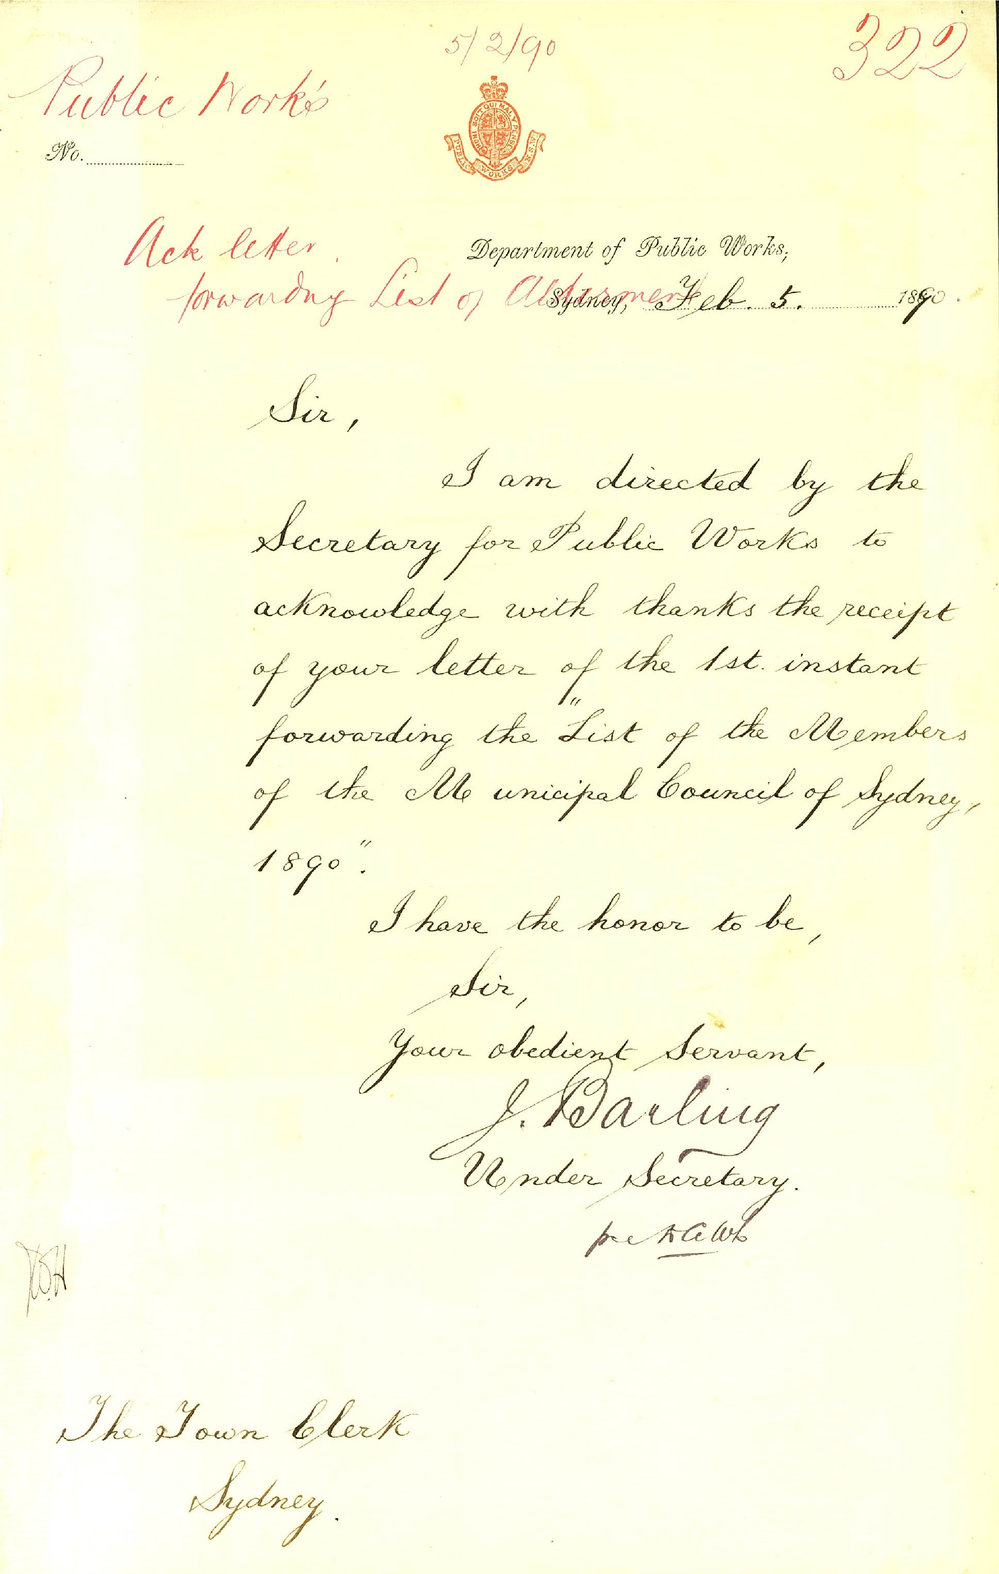 5/2/90
322
Public Work's
No.
PUBLIC WORKS N.S.W.
Ack letter
forwarding List of Aldermen
Department of Public Works,
Sydney, Feb. 5. 1890.
Sir,
I am directed by the
Secretary for Public Works to
acknowledge with thanks the receipt
of your letter of the 1st. instant
forwarding the "List of the Members
of the Municipal Council of Sydney,
1890".
I have the honor to be,
Sir,
Your obedient Servant,
J. Barling
Under Secretary.
The Town Clerk
Sydney.